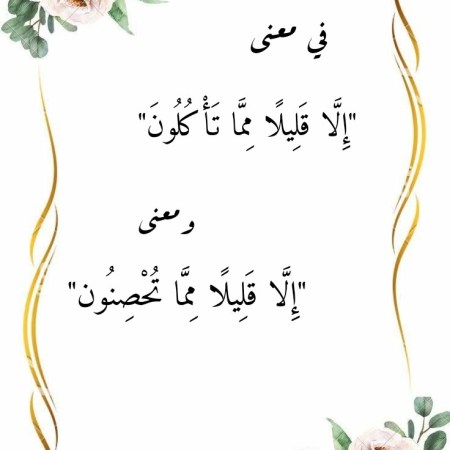 في معنى
"إِلَّا قَلِيلًا مِمَّا تَأْكُلُونَ"
ومعنى
"إِلَّا قَلِيلًا مِمَّا تُحْصِنُون"